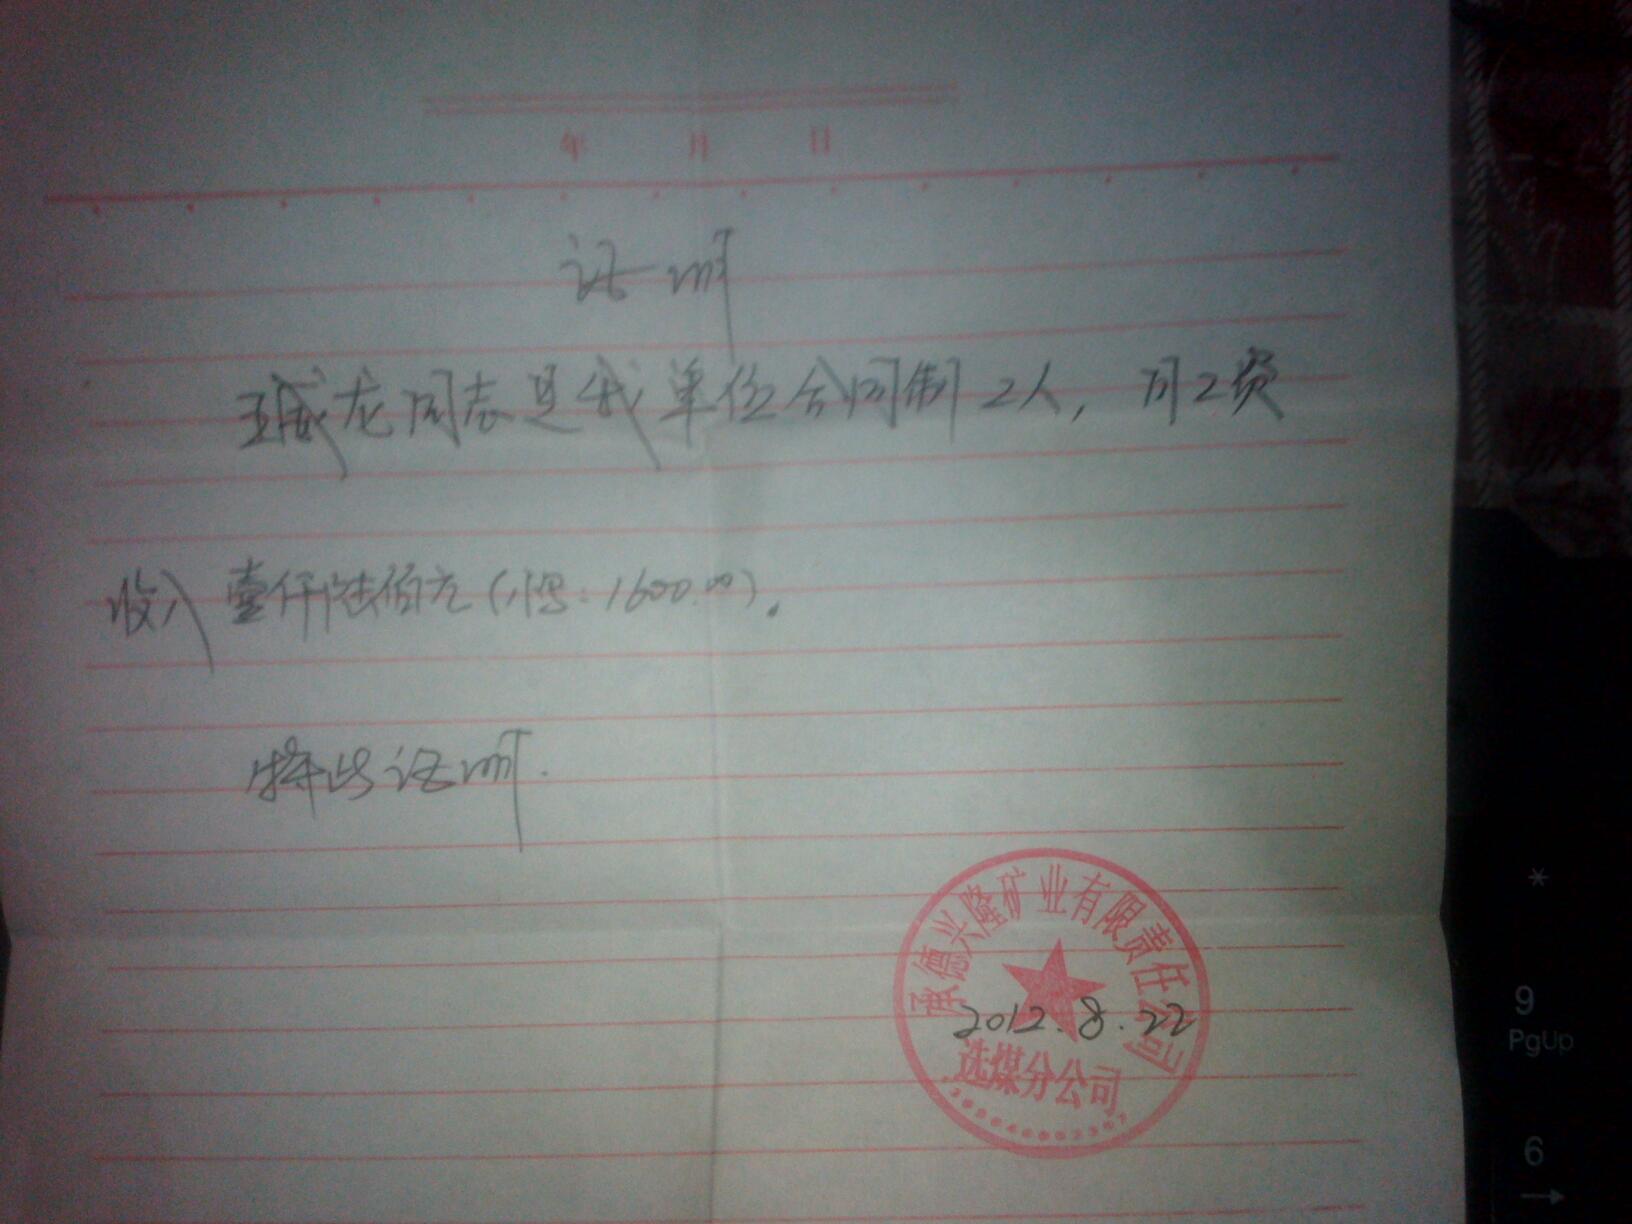 年 月 日
证明
王威龙同志是我单位合同制工人，月工资
收入壹仟陆佰元（小写：1600.00）。
特此证明.
承德兴隆矿业有限责任公司
2012.8.22
选煤分公司
*
9
PgUp
6
→